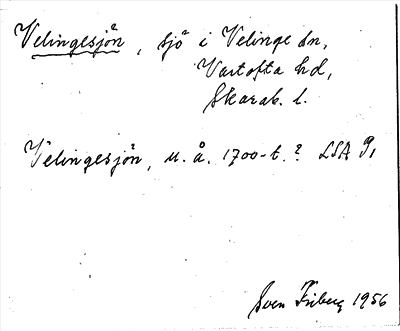 Velingesjön, sjö i Velinge sn,
Vartofta hd,
Skarab. l.
Velingesjön, u. å. 1700-t.? LSA P1
Sven Friberg 1956